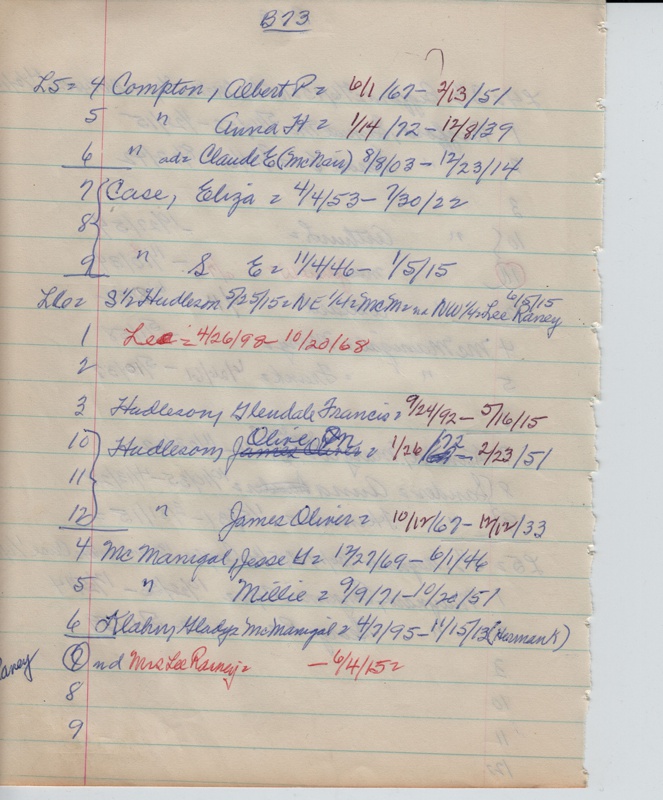 B73
L5= 4 Compton, Albert P= 6/1/67- 2/13/51
5 " Anna H= 1/14/72-12/8/39
6 " ad= Claude E(McNair) 8/8/03-12/23/14
7 Case, Eliza = 4/4/53- 7/30/22
8
9 " S E= 11/4/46- 1/5/15
L6= S½ Hudleson 5/25/15= NE ¼= McM= NW¼= Lee Raney 6/5/15
1 Lee = 4/26/98 10/20/68
2
3 Hudleson, Glendale Francis= 9/24/92- 5/16/15
10 Hudleson, Olive = 1/26/72-2/23/51
11
12 " James Oliver= 10/12/67-12/12/33
4 McManigal, Jesse H= 12/27/69-6/1/46
5 " Millie = 9/9/71-10/20/51
6 Gladys McManigal= 4/7/95-11/15/13(Herman K)
nd Mrs Lee Raney= -6/4/15=
8
9